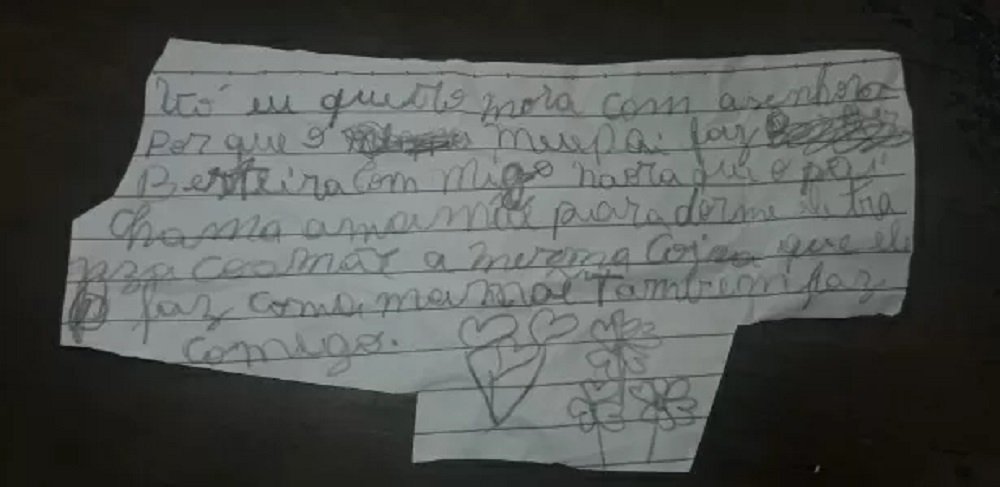 Vó eu quero mora com a senhora
Por que o meu pai faz
Besteira com migo na ora que o pai
chama a mamãe para dormi
a mesma coiza que ele
faz com a mamãe Tambem faz
comigo.